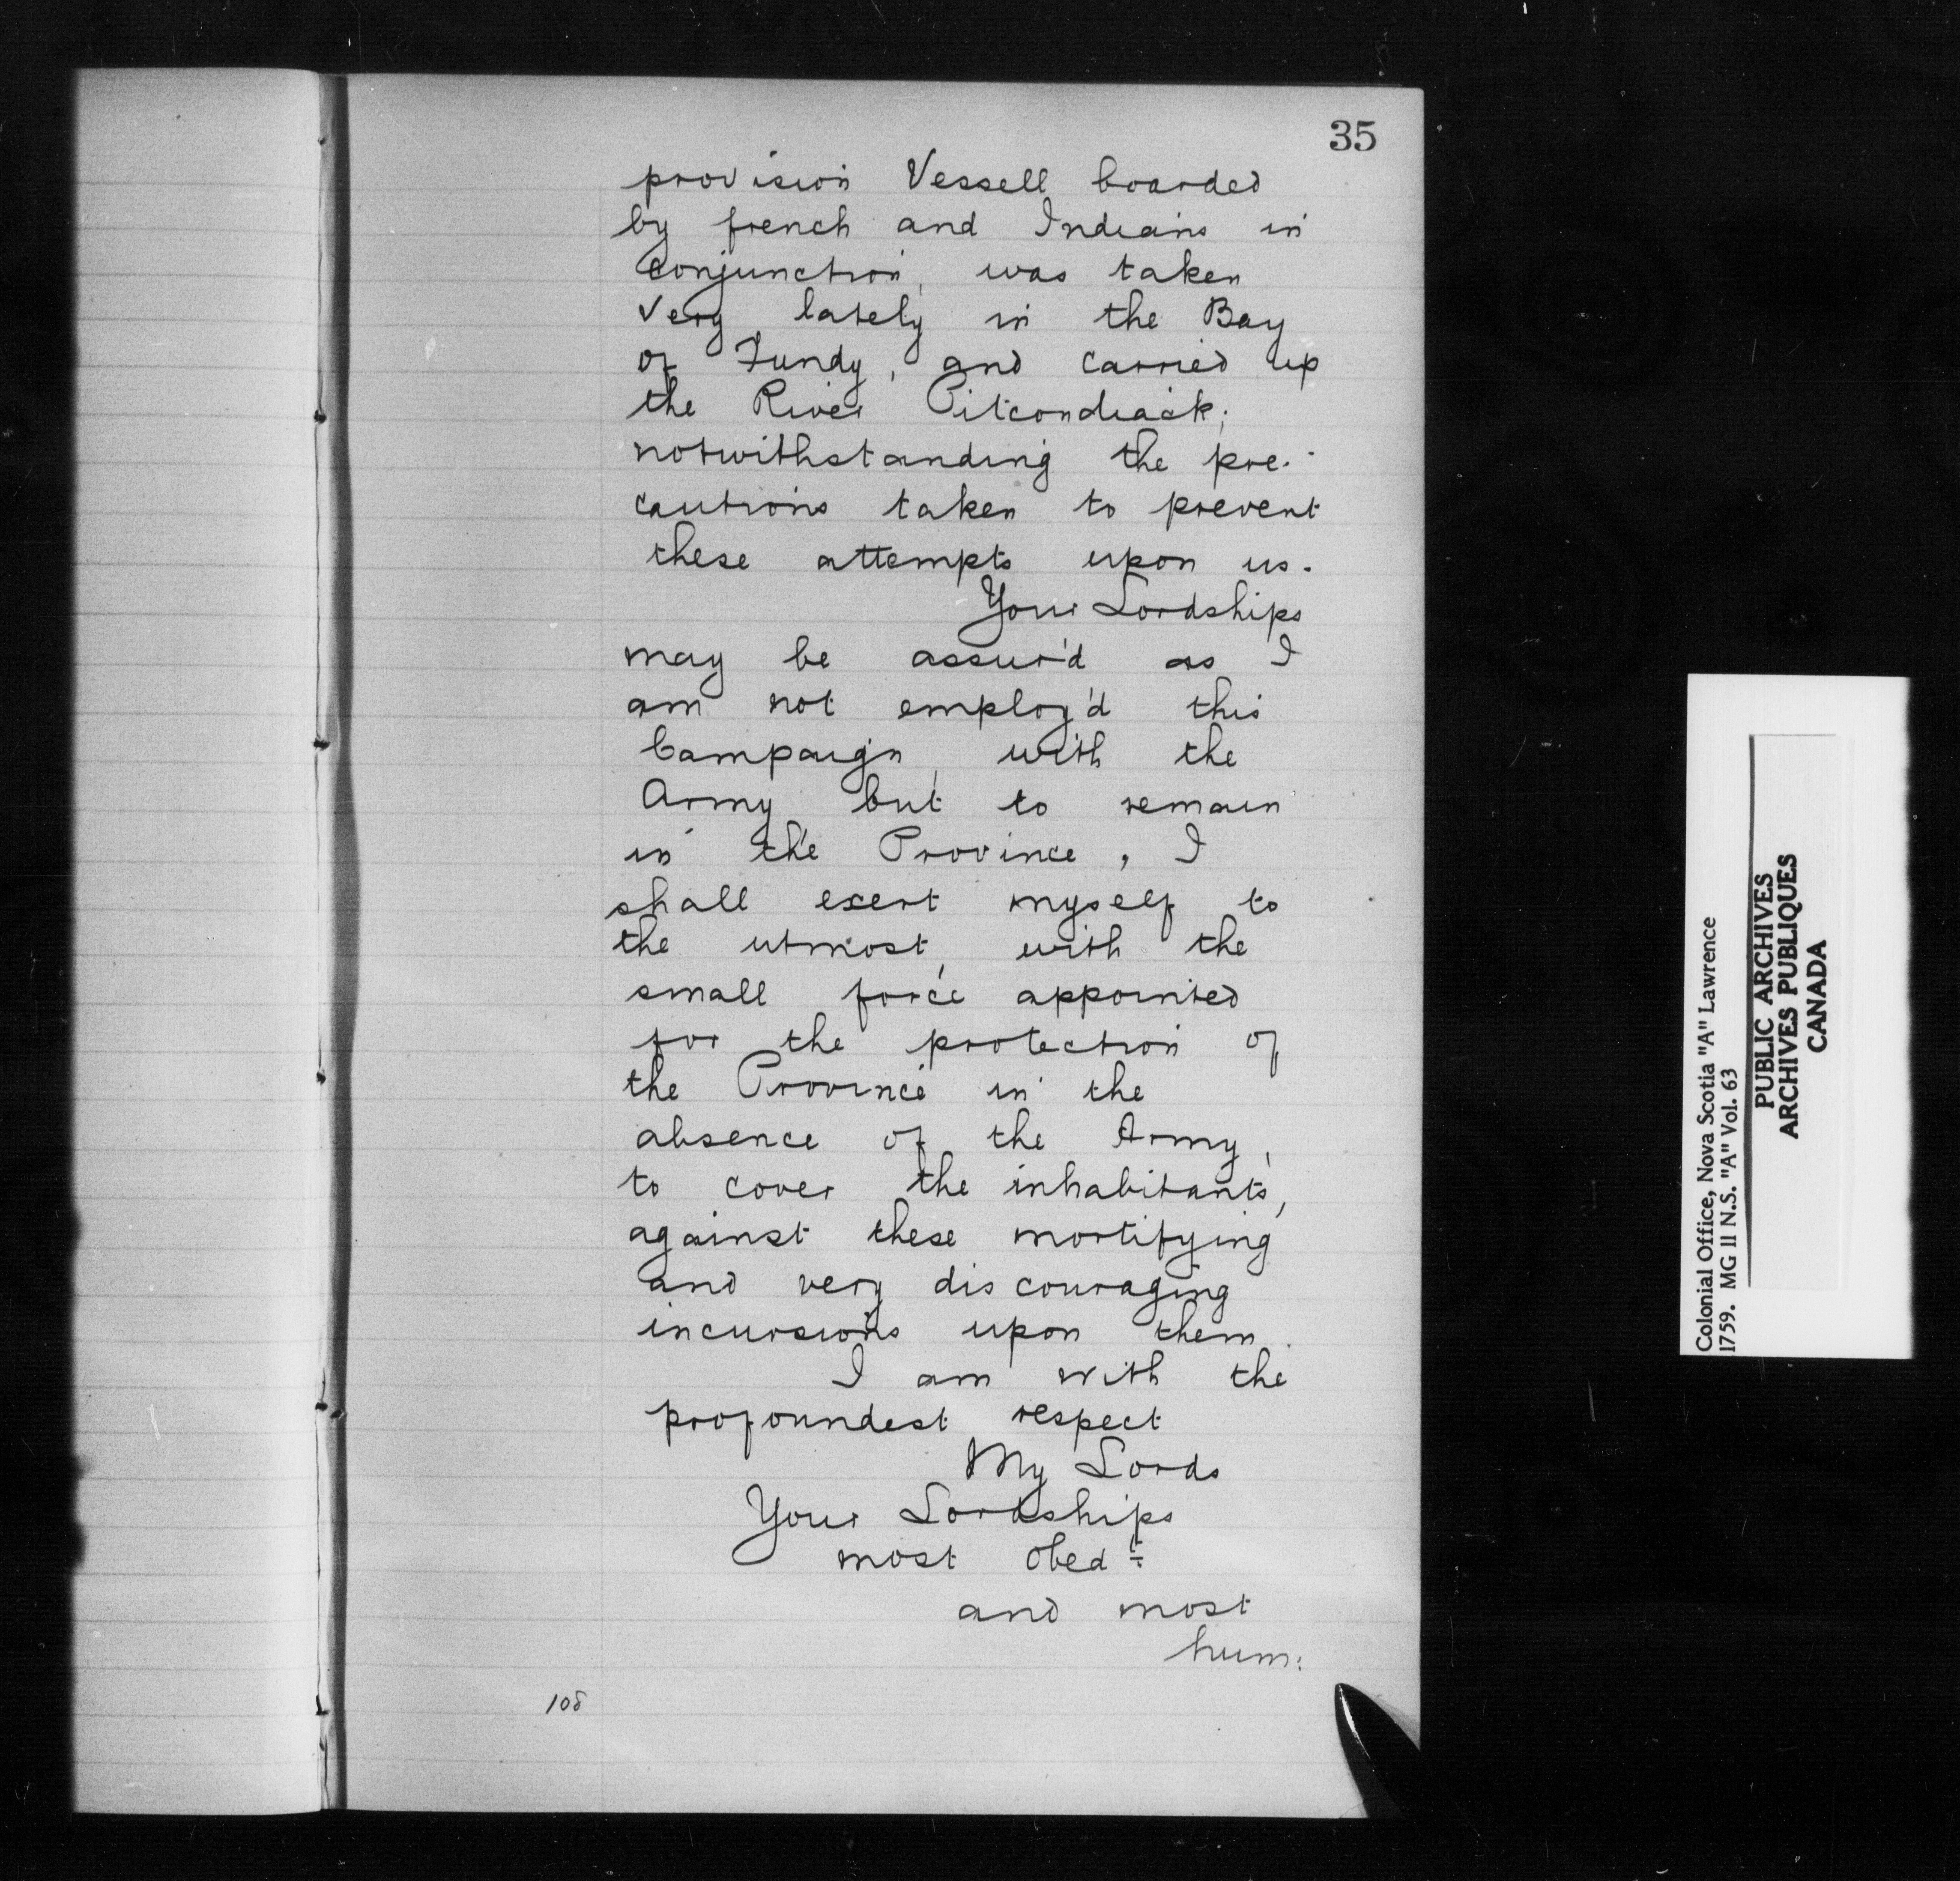 35
provision Vessell boarded
by french and Indians in
conjunction, was taken
very lately in the Bay
of Fundy, and carried up
the River Pitcondiack;
notwithstanding the pre-
cautions taken to prevent
these attempts upon us.
Your Lordships
may be assur'd as I
am not employ'd this
Campaign, with the
Army but to remain
in the Province, I
shall exert myself to
the utmost, with the
small force appointed
for the protection of
the Province in the
absence of the Army,
to cover the inhabitants,
against these mortifying
and very discouraging
incursions upon them.
I am with the
profoundest respect
My Lords
Your Lordships
most Obedt
and most
hum:
108
Colonial Office, Nova Scotia "A" Lawrence
1759. MG 11 N.S. "A" Vol. 63
PUBLIC ARCHIVES
ARCHIVES PUBLIQUES
CANADA